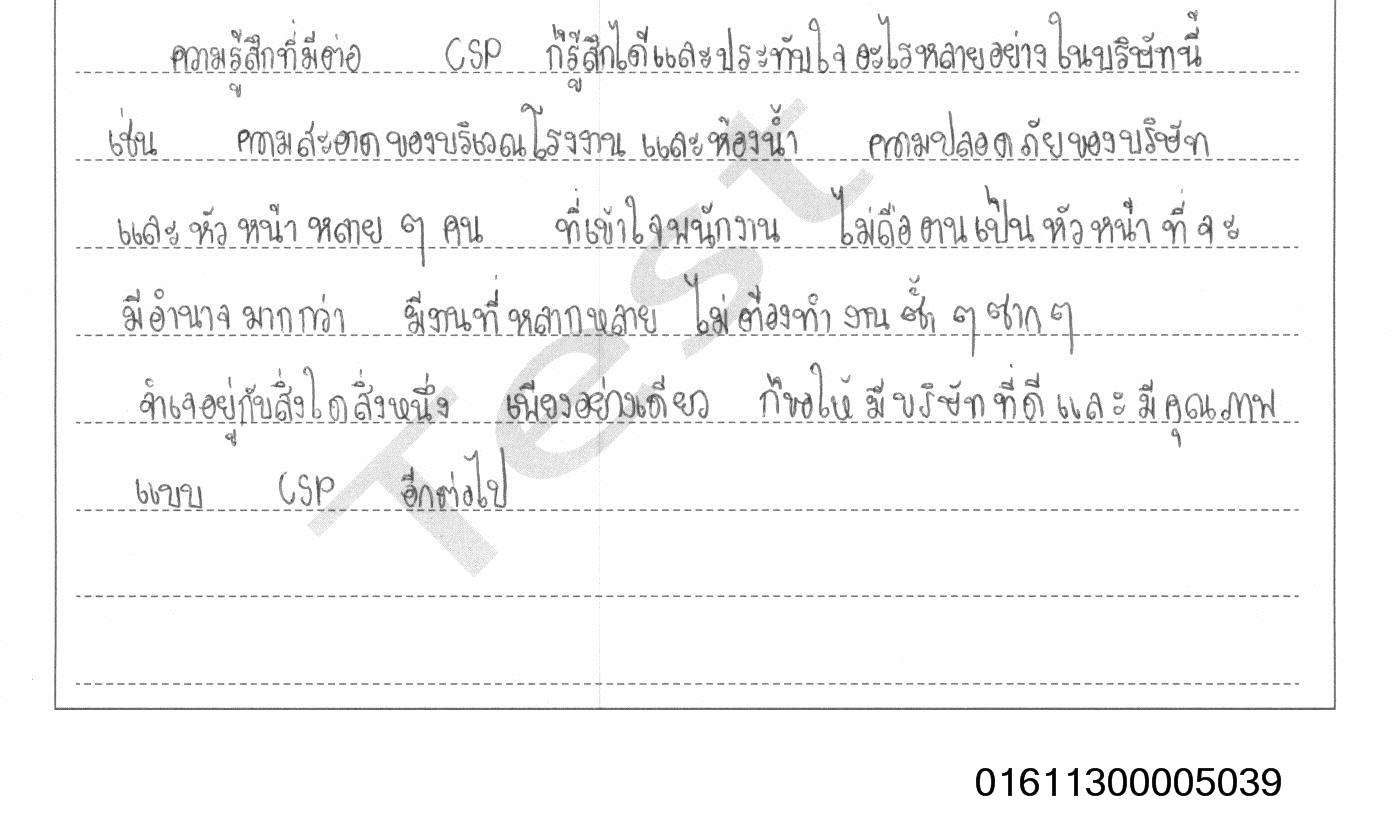 ความรู้สึกที่มีต่อ CSP ก็รู้สึกได้ดีและประทับใจอะไรหลายอย่างในบริษัทนี้
เช่น ความสะอาดของบริเวณโรงงานและห้องน้ำ ความปลอดภัยของบริษัท
และหัวหน้าหลาย ๆ คน ที่เข้าใจพนักงาน ไม่ถือตนเป็นหัวหน้าที่จะ
มีอำนาจมากกว่า มีงานที่หลากหลาย ไม่ต้องทำงานซ้ำ ๆ ซาก ๆ
จำเจอยู่กับสิ่งใดสิ่งหนึ่ง เพียงอย่างเดียว ก็ขอให้มีบริษัทที่ดีและมีคุณภาพ
แบบ CSP อีกต่อไป
Test
01611300005039